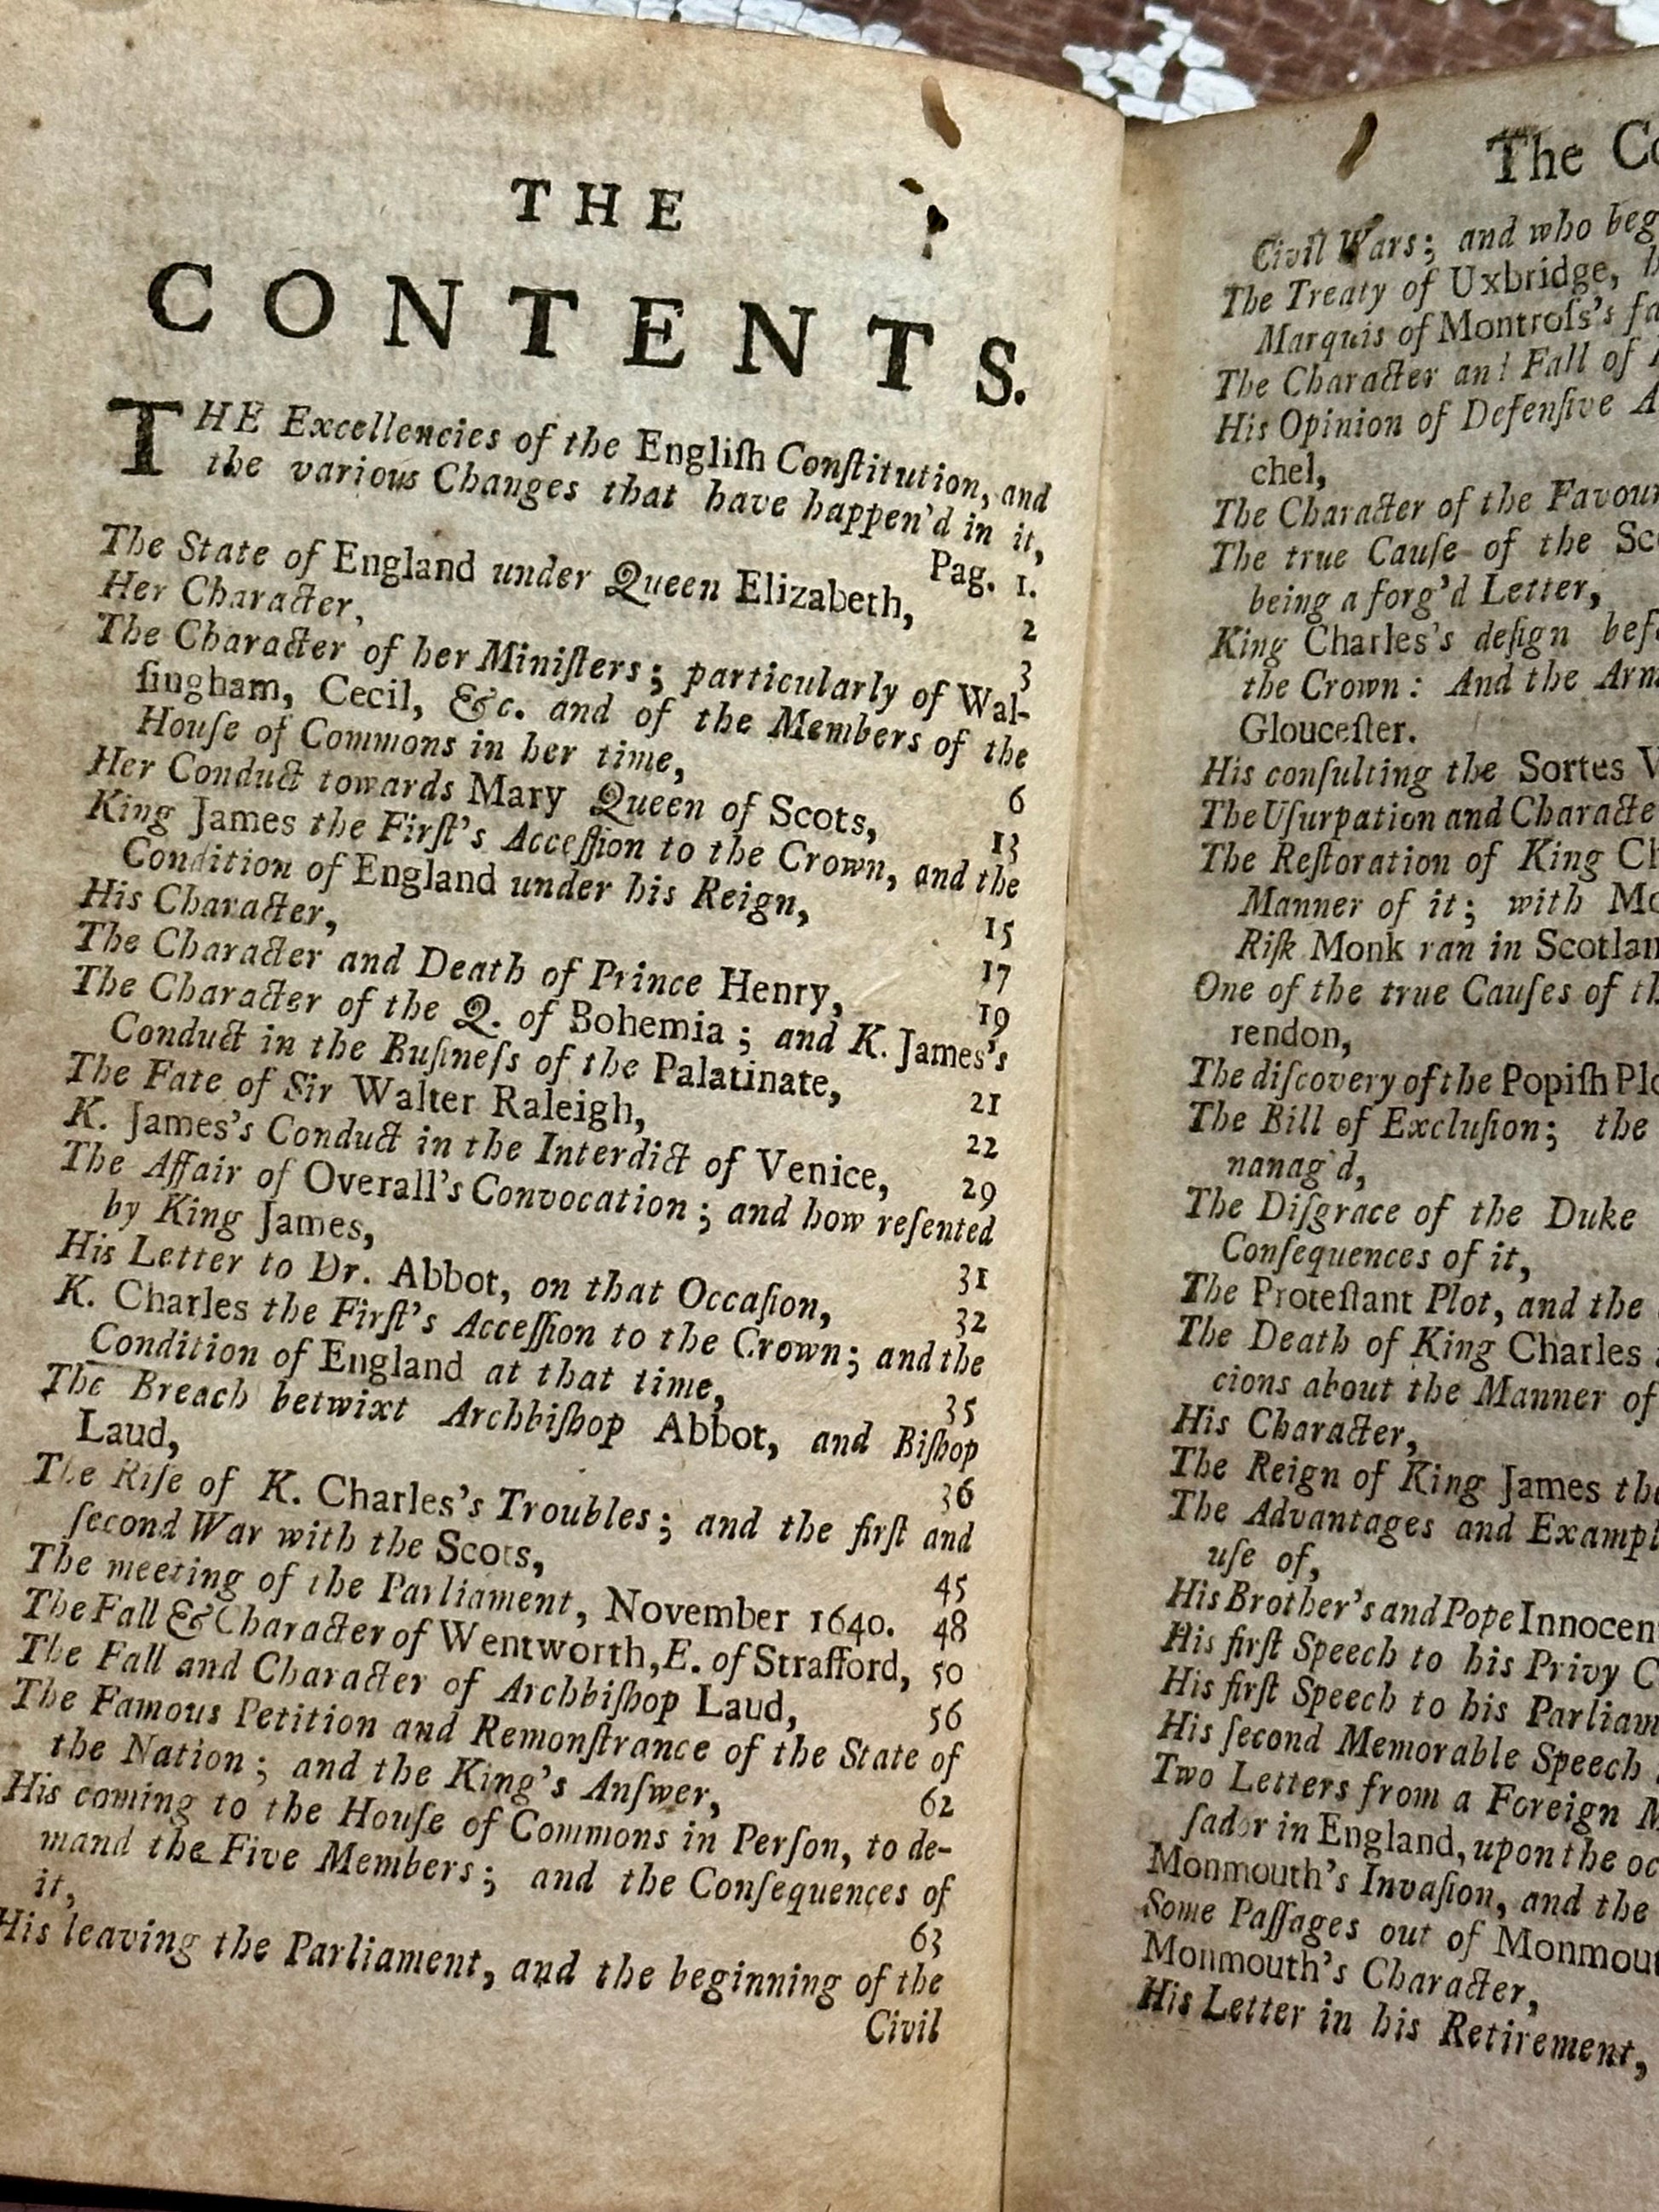 THE
CONTENTS.
THE Excellencies of the Engliſh Conſtitution, and
the various Changes that have happen'd in it,
Pag. 1.
The State of England under Queen Elizabeth, 2
Her Character, 3
The Character of her Miniſters; particularly of Wal-
ſingham, Cecil, &c. and of the Members of the
Houſe of Commons in her time, 6
Her Conduct towards Mary Queen of Scots, 13
King James the Firſt's Acceſſion to the Crown, and the
Condition of England under his Reign, 15
His Character, 17
The Character and Death of Prince Henry, 19
The Character of the Q. of Bohemia; and K. James's
Conduct in the Buſineſs of the Palatinate, 21
The Fate of Sir Walter Raleigh, 22
K. James's Conduct in the Interdict of Venice, 29
The Affair of Overall's Convocation; and how reſented
by King James, 31
His Letter to Dr. Abbot, on that Occaſion, 32
K. Charles the Firſt's Acceſſion to the Crown; and the
Condition of England at that time, 35
The Breach betwixt Archbiſhop Abbot, and Biſhop
Laud, 36
The Riſe of K. Charles's Troubles; and the firſt and
ſecond War with the Scots, 45
The meeting of the Parliament, November 1640. 48
The Fall & Character of Wentworth, E. of Strafford, 50
The Fall and Character of Archbiſhop Laud, 56
The Famous Petition and Remonſtrance of the State of
the Nation; and the King's Anſwer, 62
His coming to the Houſe of Commons in Perſon, to de-
mand the Five Members; and the Conſequences of
it, 63
His leaving the Parliament, and the beginning of the
Civil
The Co
Civil Wars; and who beg
The Treaty of Uxbridge,
Marquis of Montroſs's fa
The Character and Fall of
His Opinion of Defenſive A
chel,
The Character of the Favour
The true Cauſe of the Sc
being a forg'd Letter,
King Charles's deſign bef
the Crown: And the Arm
Glouceſter.
His conſulting the Sortes V
The Uſurpation and Characte
The Reſtoration of King Ch
Manner of it; with Mo
Riſk Monk ran in Scotlan
One of the true Cauſes of th
rendon,
The diſcovery of the Popiſh Plo
The Bill of Excluſion; the
nanag'd,
The Diſgrace of the Duke
Conſequences of it,
The Proteſtant Plot, and the
The Death of King Charles
cions about the Manner of
His Character,
The Reign of King James the
The Advantages and Exampl
uſe of,
His Brother's and Pope Innocen
His firſt Speech to his Privy C
His firſt Speech to his Parliam
His ſecond Memorable Speech
Two Letters from a Foreign M
ſador in England, upon the oc
Monmouth's Invaſion, and the
Some Paſſages out of Monmout
Monmouth's Character,
His Letter in his Retirement,